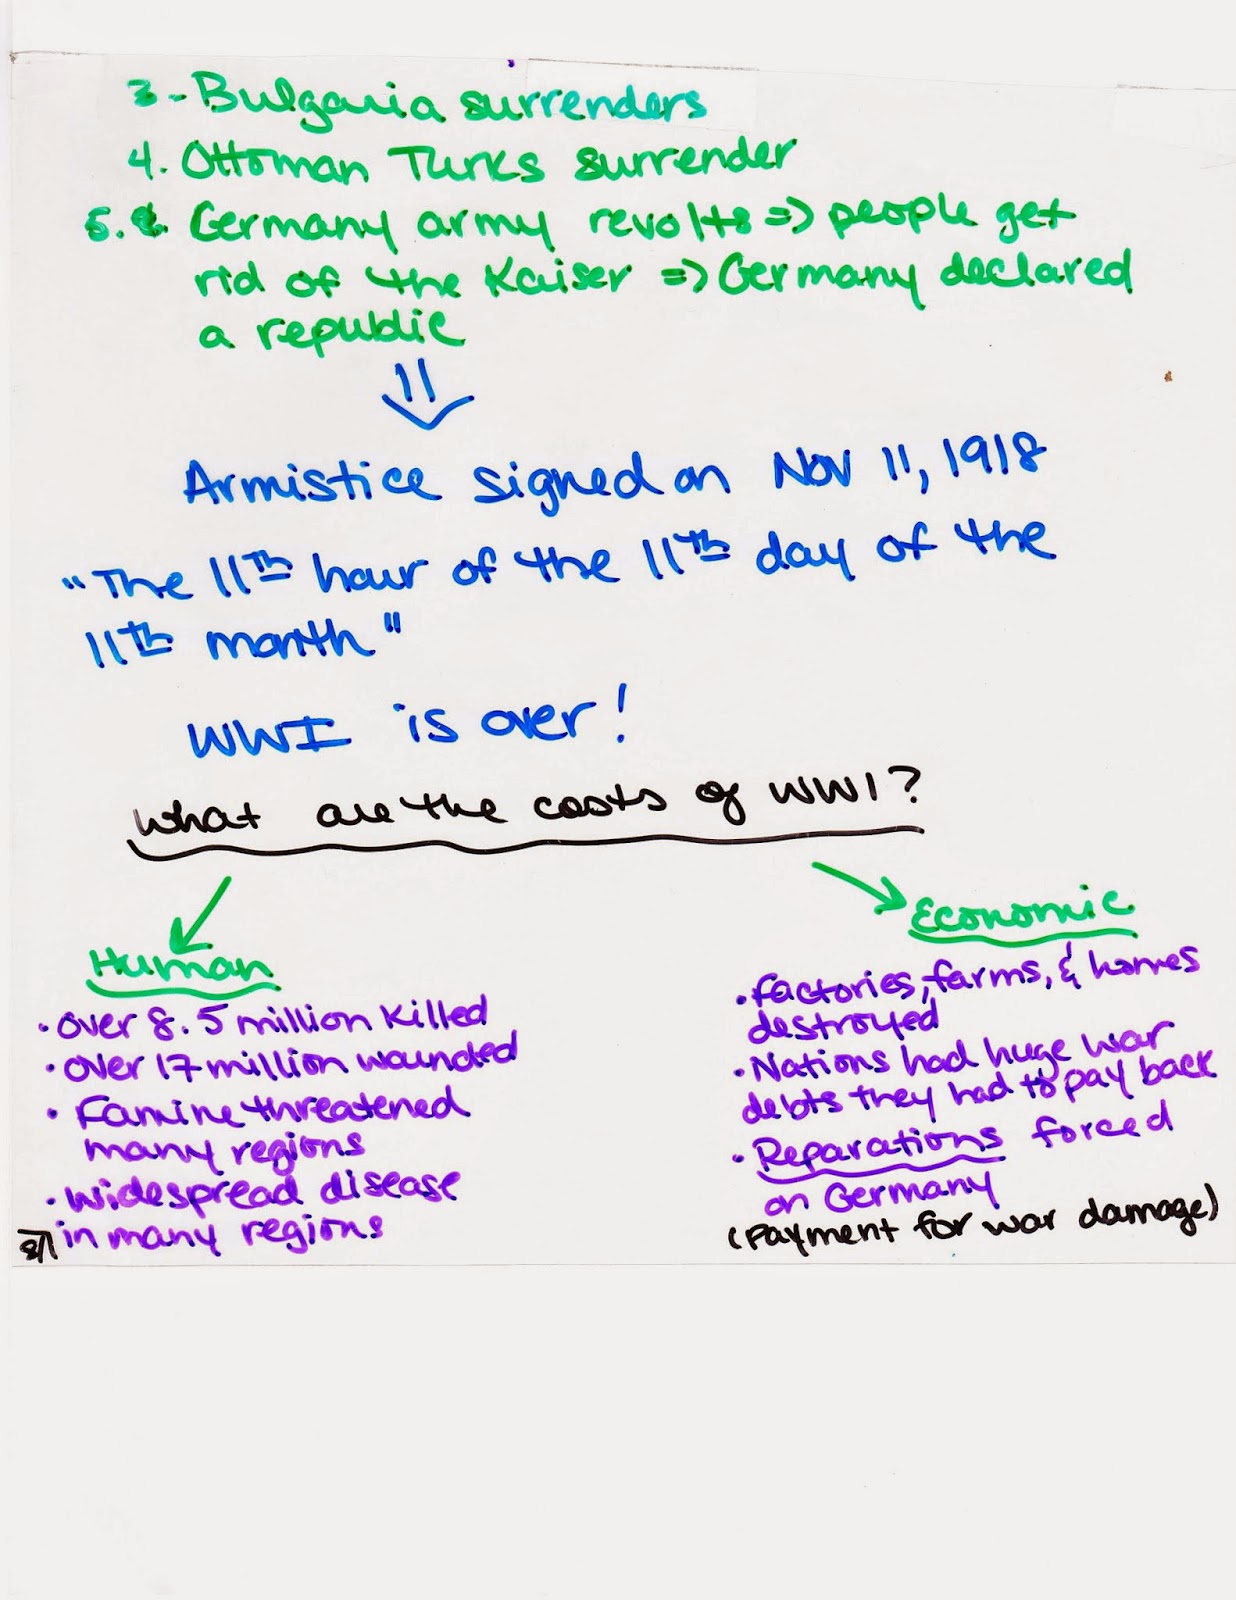 3- Bulgaria surrenders
4. Ottoman Turks surrender
5. Germany army revolts => people get
rid of the Kaiser => Germany declared
a republic
Armistice signed on Nov 11, 1918
"The 11th hour of the 11th day of the
11th month"
WWI is over!
What are the costs of WW1?
Human
• Over 8.5 million killed
• Over 17 million wounded
• Famine threatened
many regions
• Widespread disease
in many regions
Economic
• Factories, farms, & homes
destroyed
• Nations had huge war
debts they had to pay back
• Reparations forced
on Germany
(Payment for war damage)